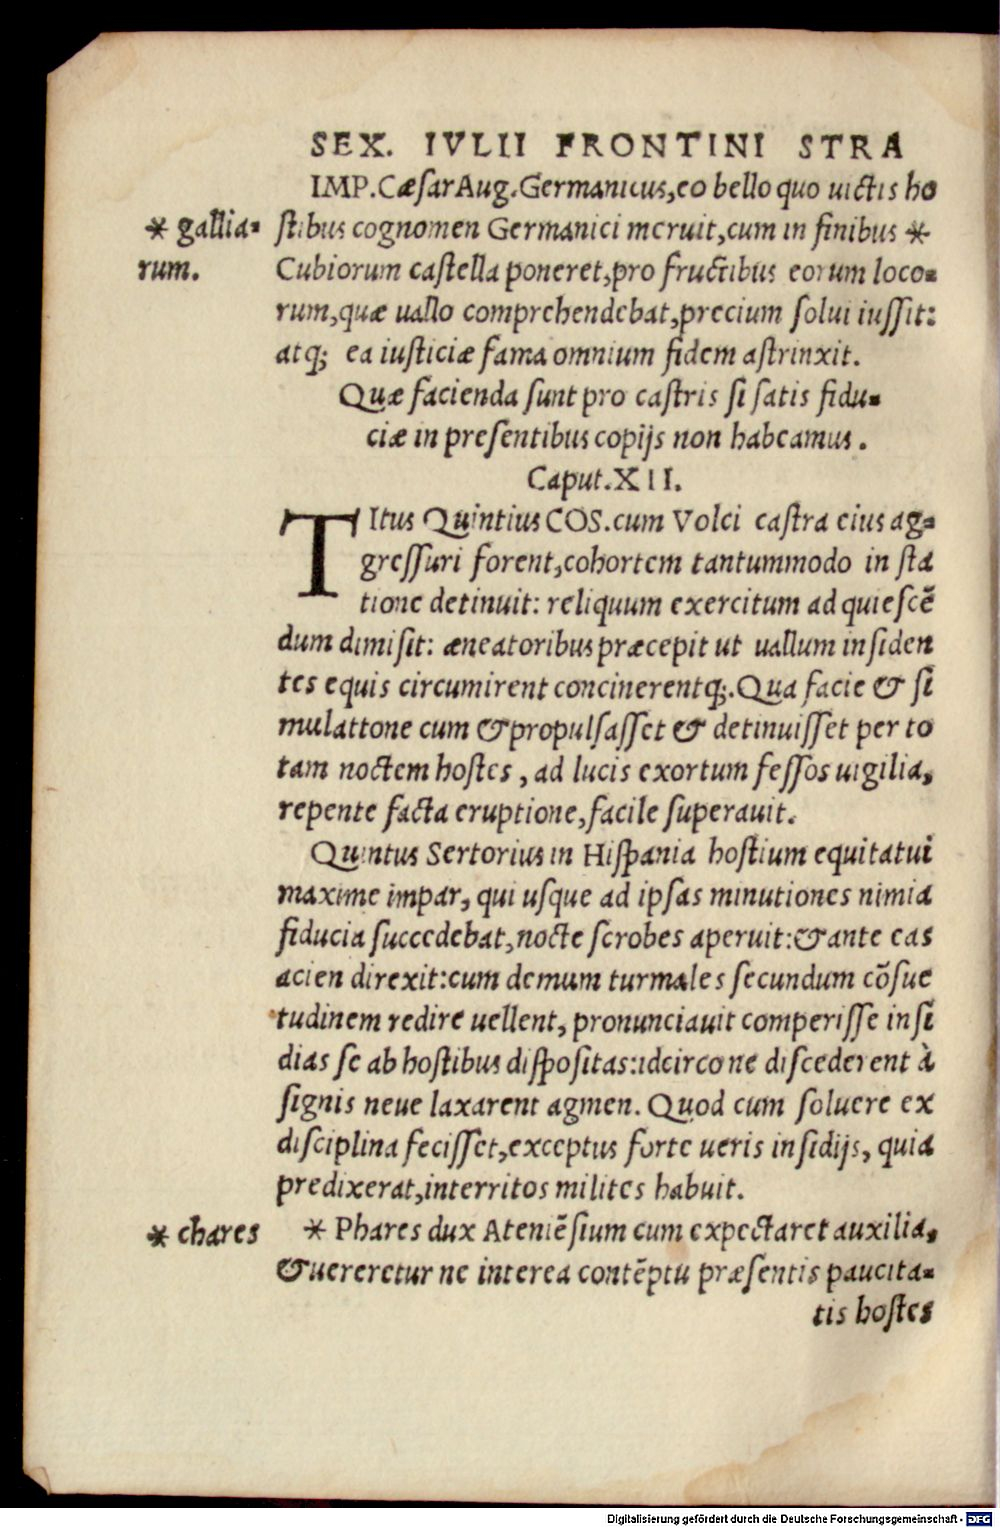 SEX. IVLII FRONTINI STRA
IMP.CæsarAug.Germanicus,eo bello quo uictis ho
* gallia-
rum.
stibus cognomen Germanici meruit,cum in finibus *
Cubiorum castella poneret,pro fructibus eorum loco-
rum,quæ uallo comprehendebat,precium solui iussit:
atq; ea iusticiæ fama omnium fidem astrinxit.
Quæ facienda sunt pro castris si satis fidu-
ciæ in presentibus copijs non habeamus.
Caput.XII.
TItus Quintius COS.cum Volci castra eius ag-
gressuri forent,cohortem tantummodo in sta
tione detinuit: reliquum exercitum ad quiescē
dum dimisit: æneatoribus præcepit ut uallum insiden
tes equis circumirent concinerentq;.Qua facie & si
mulattone cum & propulsasset & detinuisset per to
tam noctem hostes, ad lucis exortum fessos uigilia,
repente facta eruptione,facile superauit.
Quintus Sertorius in Hispania hostium equitatui
maxime impar, qui usque ad ipsas minutiones nimia
fiducia succedebat,nocte scrobes aperuit:& ante eas
acien direxit:cum demum turmales secundum cōsue
tudinem redire uellent, pronunciauit comperisse insi
dias se ab hostibus dispositas:idcirco ne discederent à
signis neue laxarent agmen. Quod cum soluere ex
disciplina fecisset,exceptus forte ueris insidijs, quia
predixerat,interritos milites habuit.
* chares
* Phares dux Ateniēsium cum expectaret auxilia,
& uereretur ne interea contēptu præsentis paucita-
tis hostes
Digitalisierung gefördert durch die Deutsche Forschungsgemeinschaft - DFG